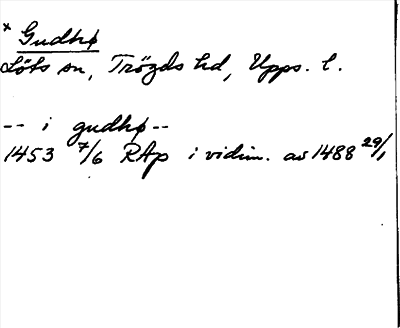 * Gudhø
Löts sn, Trögds hd, Upps. l.
-- i gudhø --
1453 7/6 RAp i vidim. av 1488 29/1